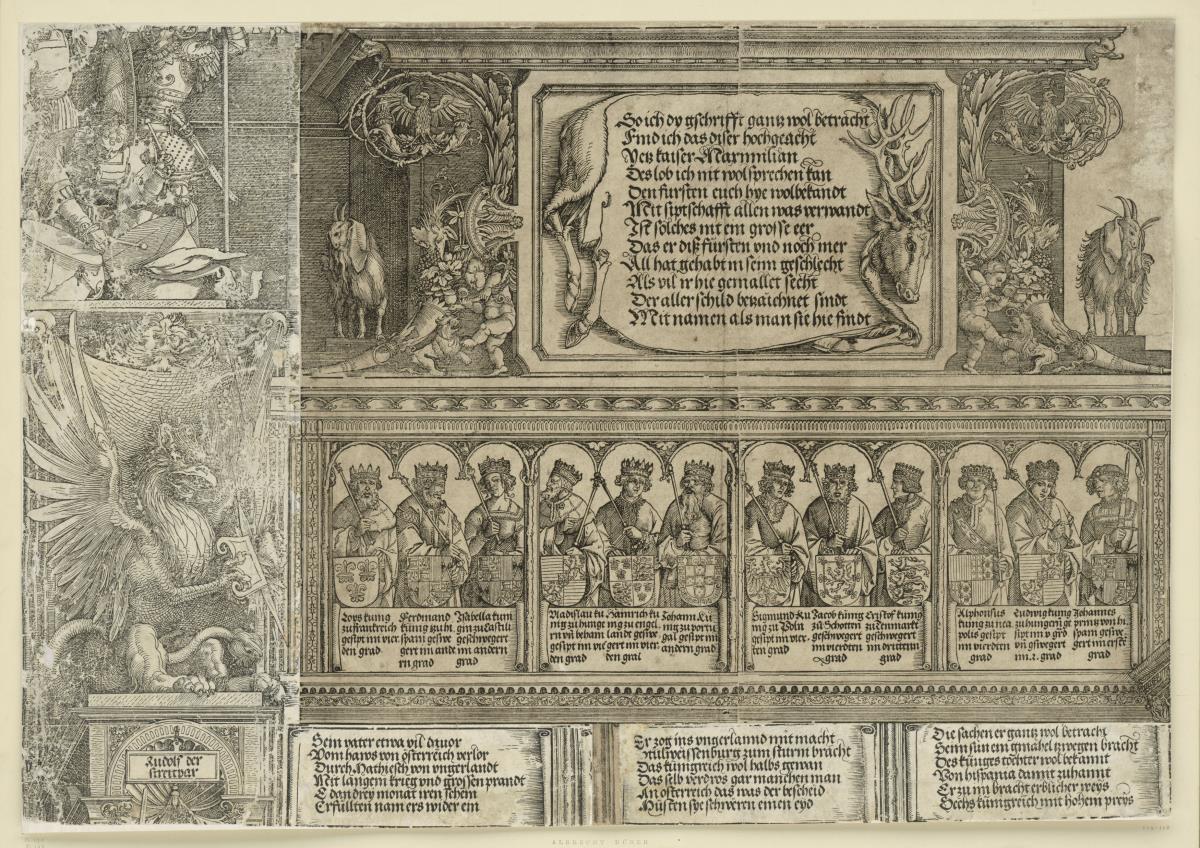 So ich dy gschrifft gantz wol betracht
Find ich das diser hochgeacht
Vetz kaiser Maxmilian
Des lob ich nit wolsprechen kan
Den fursten euch hye wolbekandt
Mit siptschafft allen was verwandt
Ist solches nit ein grosse eer
Das er diß fürsten vnd noch mer
All hat gehabt in seim geschlecht
Als vil ir hie gemallet secht
Der aller schild bezaichnet sindt
Mit namen als man sie hie findt
Loys kung
zu franckreich
gesipt im vier
den grad
Ferdinand
küng zu hi
spani geswe
gert im ande
rn grad
Ysabella kun
gin zu Castili
geschwegert
im andern
grad
Vladislau ku
ng zu hunge
rn vn beham
gesipt im vier
den grad
Hainrich ku
ng zu engel
landt geswe
gert im vier
den grad
Johann Ku
ng zu portu
gal gesipt im
andern grad
Sigmund Ku
nig zu Poln
gesipt im vier
den grad
Jacob küng
zu Schotten
geschwegert
im vierden
grad
Cristof kung
zu Denmarkt
geschwegert
im dritten
grad
Alphonsus
kung zu nea
polis gesipt
im vierden
grad
Ludwig kung
zu hungern ge
sipt im v grad
vn gswegert
im .2. grad
Johannes
prinz von hi
spani geswe
gert im erste
grad
Rudolf der
streytpar
Sein vater etwa vil davor
Vom haws von österreich verlor
Durch Mathiesch von vngerlandt
Mit langem krieg vnd grossen prandt
E dan drey monat iren schein
Erfüllten nam ers wider ein
Er zog ins vngerlannd mit macht
Stulweissenburg zum sturm bracht
Das küngreich wol halbs gewan
Das selb verdros gar manchen man
An osterreich das was der bescheid
Musten sye schweren einen eyd
Die sachen er gantz wol betracht
Seim sun ein gmahel zwegen bracht
Des kunges tochter wol bekannt
Von hispania damit zuhannt
Er zu im bracht erblicher weys
Sechs küngreich mit hohem preys
ALBRECHT DÜRER